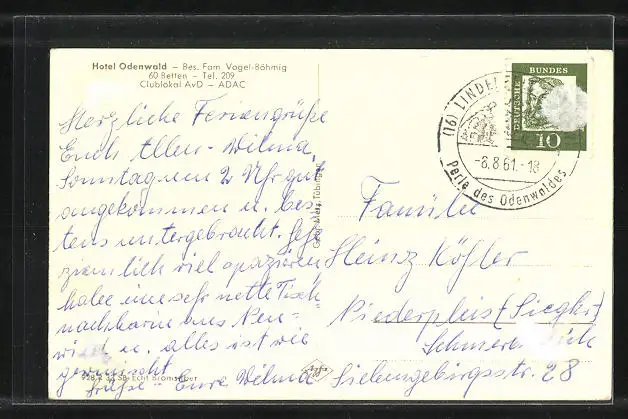 Hotel Odenwald — Bes. Fam. Vogel-Böhmig
60 Betten — Tel. 209
Clublokal AvD — ADAC
Herzliche Feriengrüße
Euch Allen - Wilma,
Sonntag um 2 Uhr gut
angekommen u. bes-
tens untergebracht. Gehe
ziemlich viel spazieren
habe eine sehr nette Tisch-
nachbarin aus Neu-
wied u. alles ist wie
gewünscht.
Grüße - Eure Wilma
Echt Bromsilber
Gebr. Metz, Tübingen
DEUTSCHE BUNDES
10
(16) LINDEN
-8.8.61.-18
Perle des Odenwaldes
Familie
Heinz Köhler
Niederpleis (Siegkr)
Siebengebirgsstr. 28